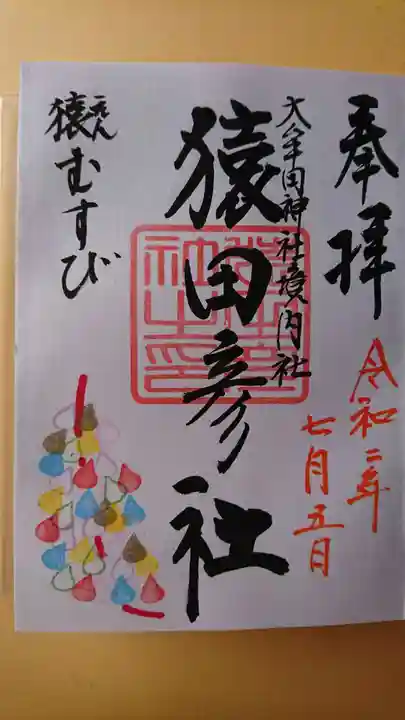 奉拝
令和二年
七月五日
大牟田神社境内社
猿田彦社
猿むすび
えん